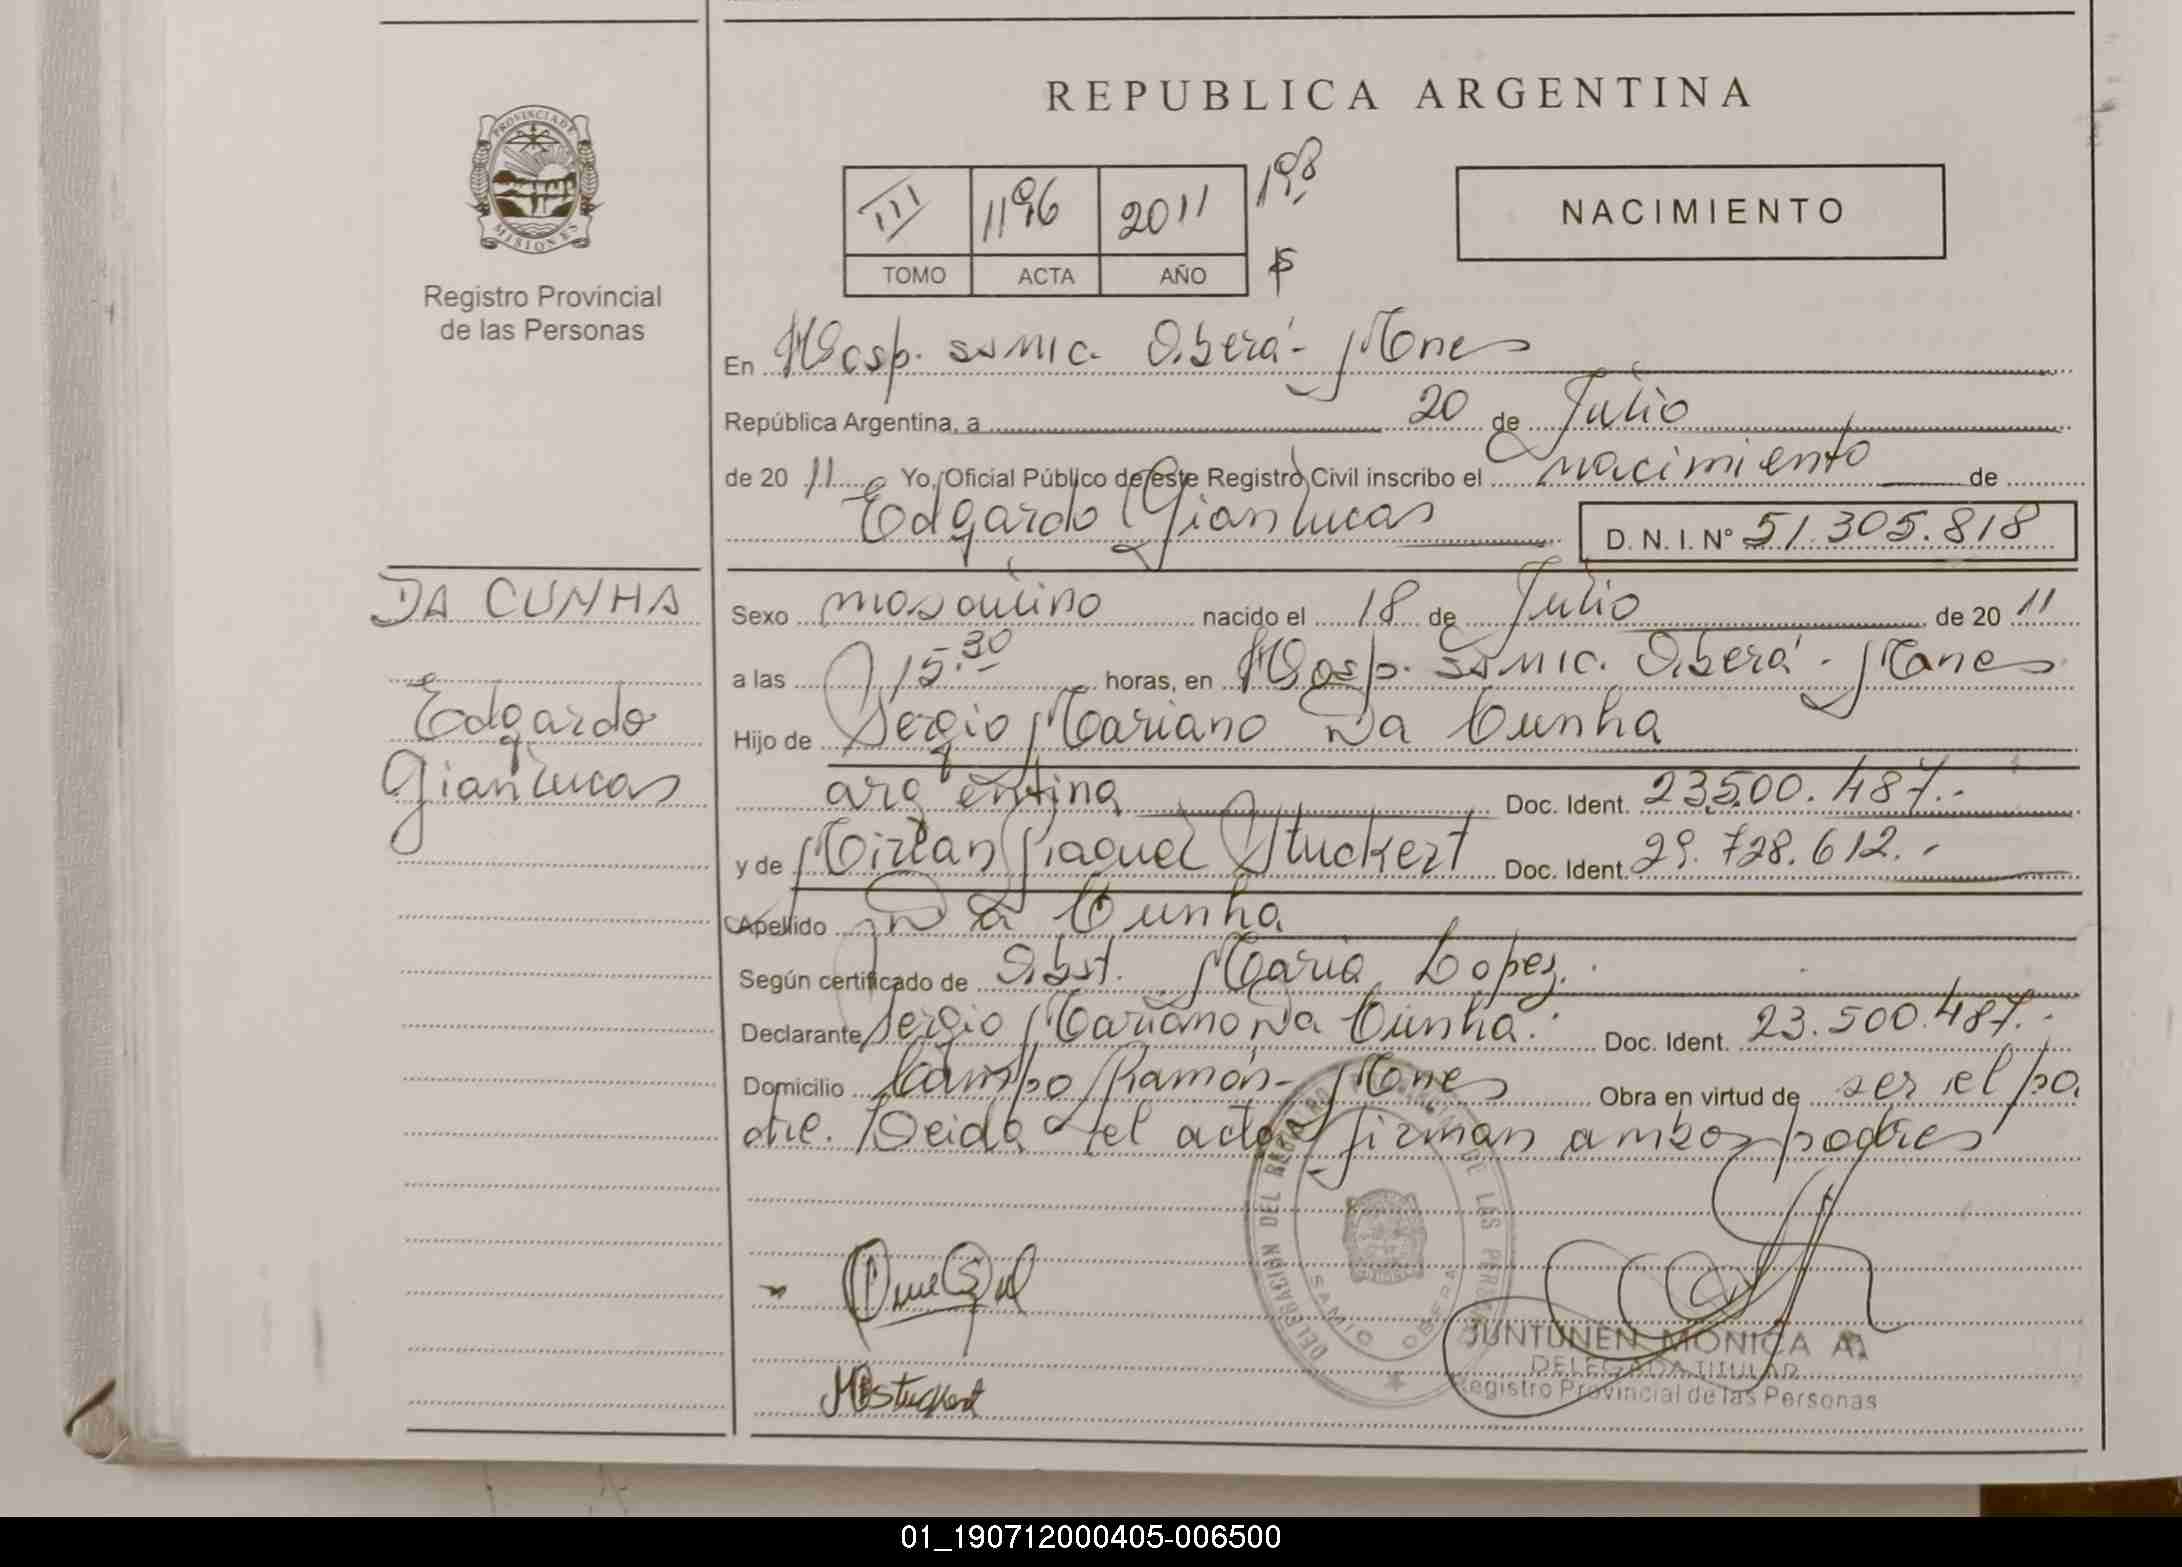 REPUBLICA ARGENTINA
PROVINCIA DE
MISIONES
Registro Provincial
de las Personas
III 1196 2011 198
TOMO ACTA AÑO
NACIMIENTO
En Hosp. SAMIC. Oberá - Mnes
República Argentina, a 20 de Julio
de 2011 Yo, Oficial Público de este Registro Civil inscribo el nacimiento de
Edgardo Gianlucas D. N. I. Nº 51.305.818
DA CUNHA
Edgardo
Gianlucas
Sexo masculino nacido el 18 de Julio de 2011
a las 15.30 horas, en Hosp. SAMIC. Oberá - Mnes
Hijo de Sergio Mariano Da Cunha
argentina Doc. Ident. 23.500.487.-
y de Mirian Raquel Stuckert Doc. Ident. 29.728.612.-
Apellido Da Cunha
Según certificado de Obst. Maria Lopez.
Declarante Sergio Mariano Da Cunha. Doc. Ident. 23.500.487.-
Domicilio Campo Ramón - Mnes Obra en virtud de ser el pa
dre. Leida el acta firman ambos padres
DELEGACIÓN DEL REGISTRO PROVINCIAL DE LAS PERSONAS
SAMIC OBERA
MStuckert
JUNTUNEN MONICA A.
DELEGADA TITULAR
Registro Provincial de las Personas
01_190712000405-006500